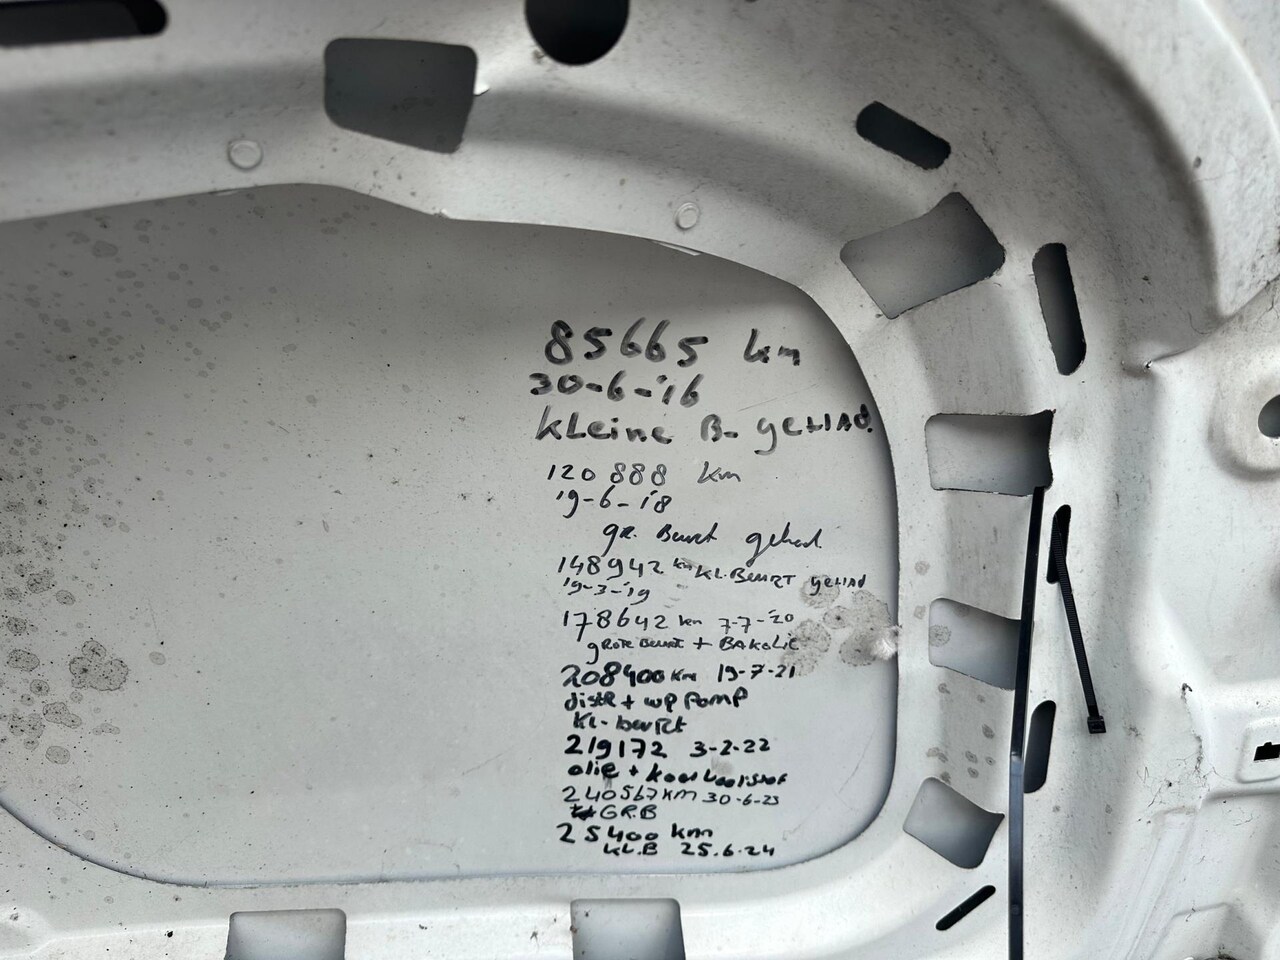 85665 km
30-6-'16
kleine B. gehad.
120 888 km
19-6-'18
gr. Beurt gehad
148942 km kl. Beurt gehad
19-3-'19
178642 km 7-7-'20
grote Beurt + BAKolie
208400 km 19-7-21
distr + wp pomp
kl- beurt
219172 3-2-22
olie + koelvloeistof
240567 km 30-6-23
GR.B
25400 km
KL.B 25.6.24